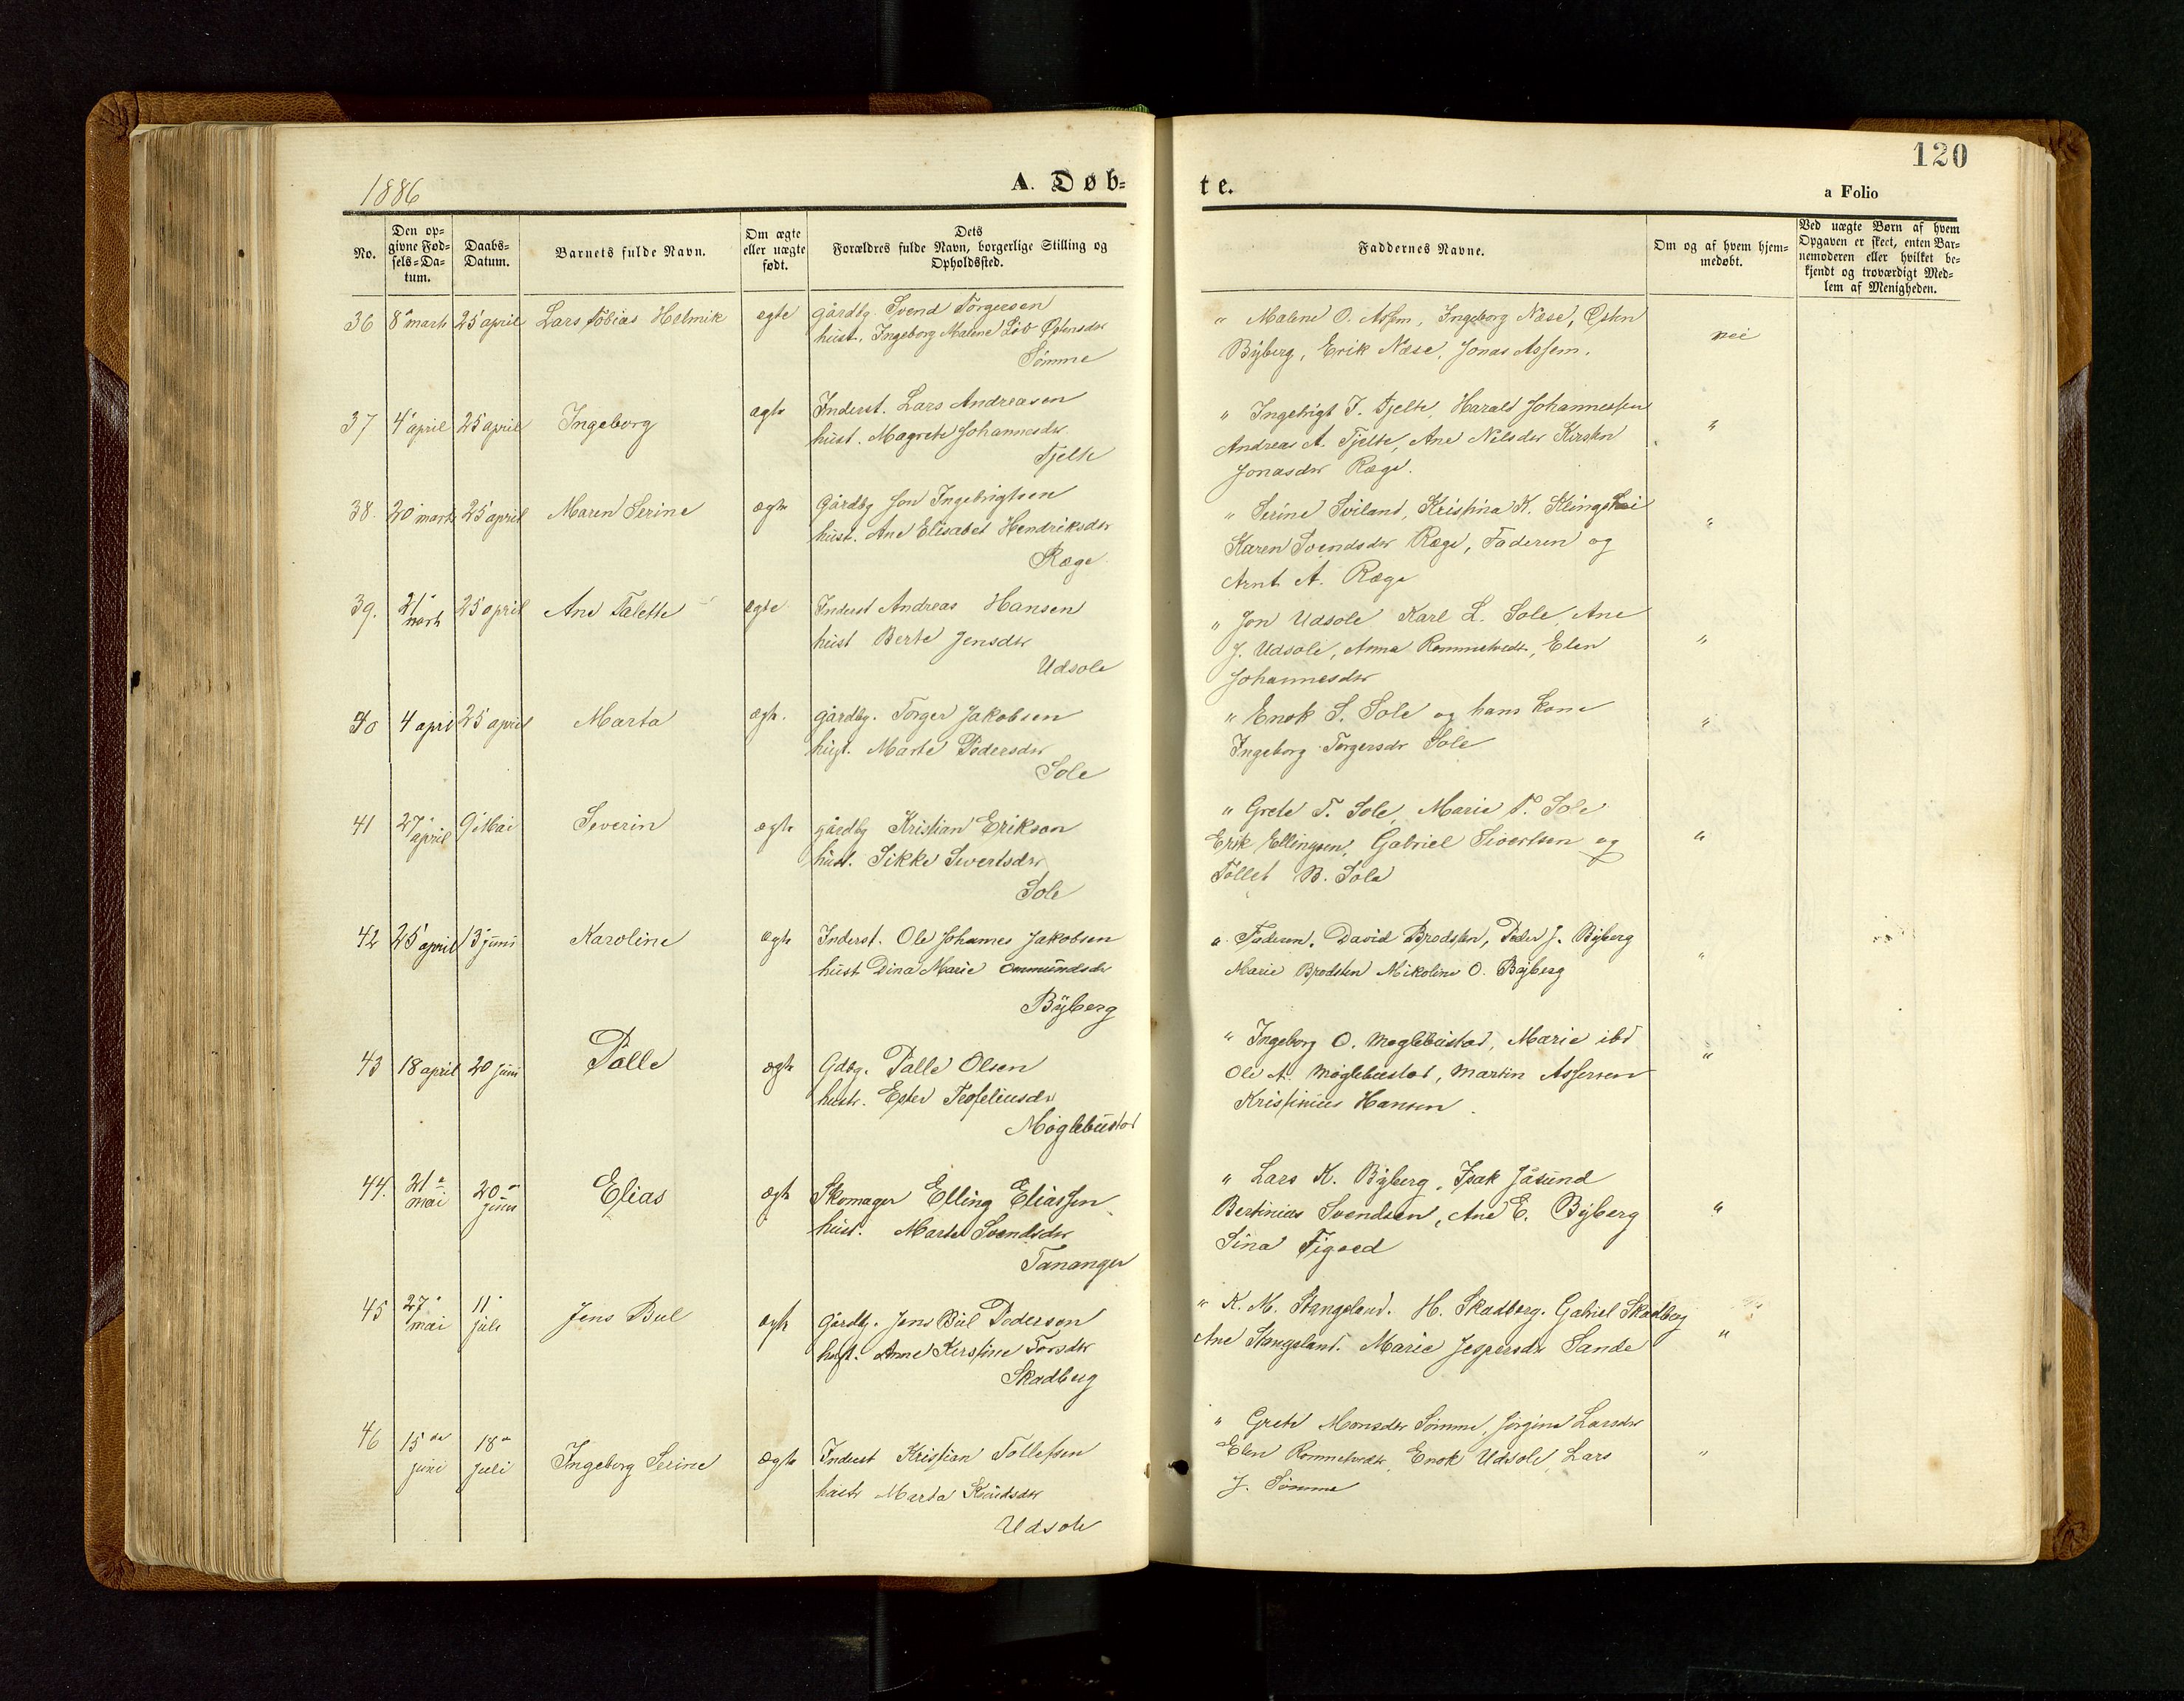 1886
A. Døb-
No.
Den op-
givne Fød-
sels-Da-
tum.
Daabs-
Datum.
Barnets fulde Navn.
Om ægte
eller uægte
født.
Dets
Forældres fulde Navn, borgerlige Stilling og
Opholdssted.
36 8 marts 25 april Lars Tobias Helmik ægte gårdbg. Svend Torgersen
hust. Ingeborg Malene Østensdr
Sømme
37 4 april 25 april Ingeborg ægte Inderst. Lars Andreasen
hust. Magrete Johannesdr
Tjelte
38. 20 marts 25 april Maren Serine ægte gårdbg Jon Ingebrigtsen
hust. Ane Elisabet Hendriksdr
Ræge
39. 21 marts 25 april Ane Talette ægte Inderst Andreas Hansen
hust Berte Jensdr
Udsole
40 4 april 25 april Marta ægte. gårdbg. Torger Jakobsen
hust. Marte Pedersdr
Sole
41 27 april 9 Mai Severin ægte gårdbg Kristian Erikson
hust. Sikke Sivertsdr
Sole
42 25 april 13 juni Karoline ægte Inderst. Ole Johannes Jakobsen
hust Dina Marie Ommundsdr
Byberg
43 18 april 20 juni Palle ægte Gdbg. Palle Olsen
hustr. Ester Teofeliusdr
Møglebustad
44. 21 mai 20 juni Elias ægte Skomager Elling Eliassen
hust. Marta Svendsdr
Tananger
45 27 mai 11 juli Jens Bul ægte gårdbg. Jens Bul Pederson
hust. Anne Kirstine Torsdr
Skadberg
46 15de juni 18 juli Ingeborg Serine ægte Inderst Kristian Tollefsen
hustr Marta Knudsdr
Udsole
te.
120
a Folio
Faddernes Navne.
Om og af hvem hjem-
medøbt.
Ved uægte Børn af hvem
Opgaven er skeet, enten Bar-
nemoderen eller hvilket be-
kjendt og troværdigt Med-
lem af Menigheden.
" Malene O. Assem, Ingeborg Næse, Østen
Byberg, Erik Næse, Jonas Assem. nei
" Ingebrigt J. Tjelte, Harald Johannessen
Andreas A. Tjelte, Ane Nilsdr Kirsten "
Jonasdr Ræge.
" Serine Sviland, Kristina K. Klingshei
Karen Svendsdr Ræge, Faderen og "
Arnt A. Ræge
" Jon Udsole Karl L. Sole, Ane
J. Udsole, Anna Rommetvedt, Elen "
Johannesdr
" Enok S. Sole og hans kone "
Ingeborg Torgersdr Sole
" Grete T. Sole, Marie T. Sole
Erik Ellingsen, Gabriel Sivertsen og "
Tollet B. Sola
" Faderen, David Brodsten, Peder J. Byberg
Marie Brodsten Mikoline O. Byberg "
" Ingeborg O. Møglebustad, Marie ibd
Ole A. Møglebustad, Martin Assersen "
Kristinius Hansen.
" Lars K. Byberg, Isak Jåsund
Bertinius Svendsen, Ane E. Byberg "
Sina Tigged
" K. M. Stangeland. H. Skadberg. Gabriel Skadberg
Ane Stangeland. Marie Jespersdr Sande "
" Grete Monsdr Sømme, Jørgine Larsdr
Elen Rommetvedt, Enok Udsole, Lars "
J. Sømme